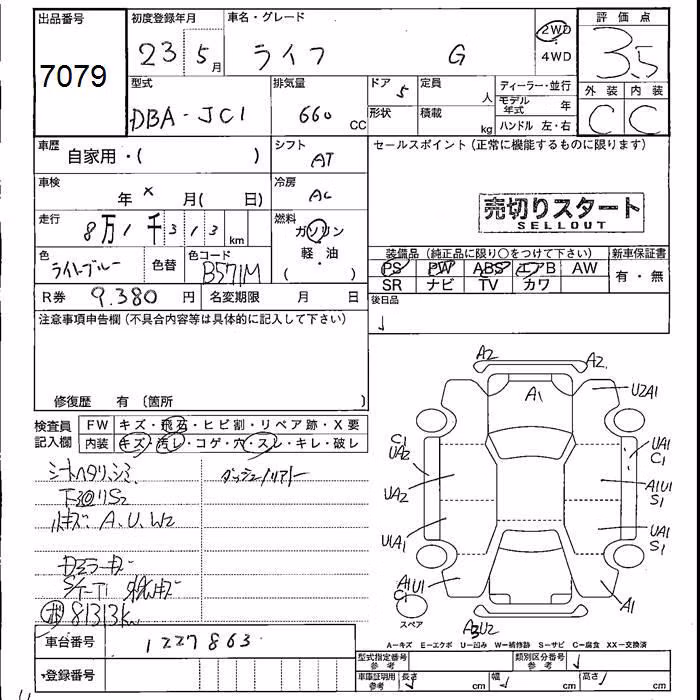 出品番号
7079
初度登録年月
23 5月
車名・グレード
ライフ G
2WD
4WD
評価点
3.5
外装 内装
C C
型式
DBA-JC1
排気量
660 CC
ドア
5
形状
定員
人
積載
kg
ディーラー・並行
モデル年式 年
ハンドル 左・右
車歴
自家用・( )
シフト
AT
セールスポイント(正常に機能するものに限ります)
車検
年 × 月( 日)
冷房
AC
売切りスタート
SELLOUT
走行
8万1千313 km
燃料
ガソリン
軽・油
( )
色
ライトブルー
色替
色コード
B571M
装備品(純正品に限り○をつけて下さい)
新車保証書
PS PW ABS エアB AW
SR ナビ TV カワ
有・無
R券 9.380 円
名変期限 月 日
後日品
注意事項申告欄(不具合内容等は具体的に記入して下さい)
修復歴 有 〔箇所 〕
検査員記入欄
FW キズ・飛石・ヒビ割・リペア跡・X要
内装 キズ・汚レ・コゲ・穴・スレ・キレ・破レ
シートヘタリ、シミ
A.U.W2
81313km
A2 A2
A1
U2A1
C1
UA2
UA1
C1
UA2
A1U1
S1
U1A1
UA1
S1
A1U1
C1
A1
スペア
A3U2
A-キズ E-エクボ U-凹み W-補修跡 S-サビ C-腐食 XX-交換済
車台番号
1227863
登録番号
型式指定番号 参考
類別区分番号 参考
車車証明用 参考
長さ cm
幅 cm
高さ cm